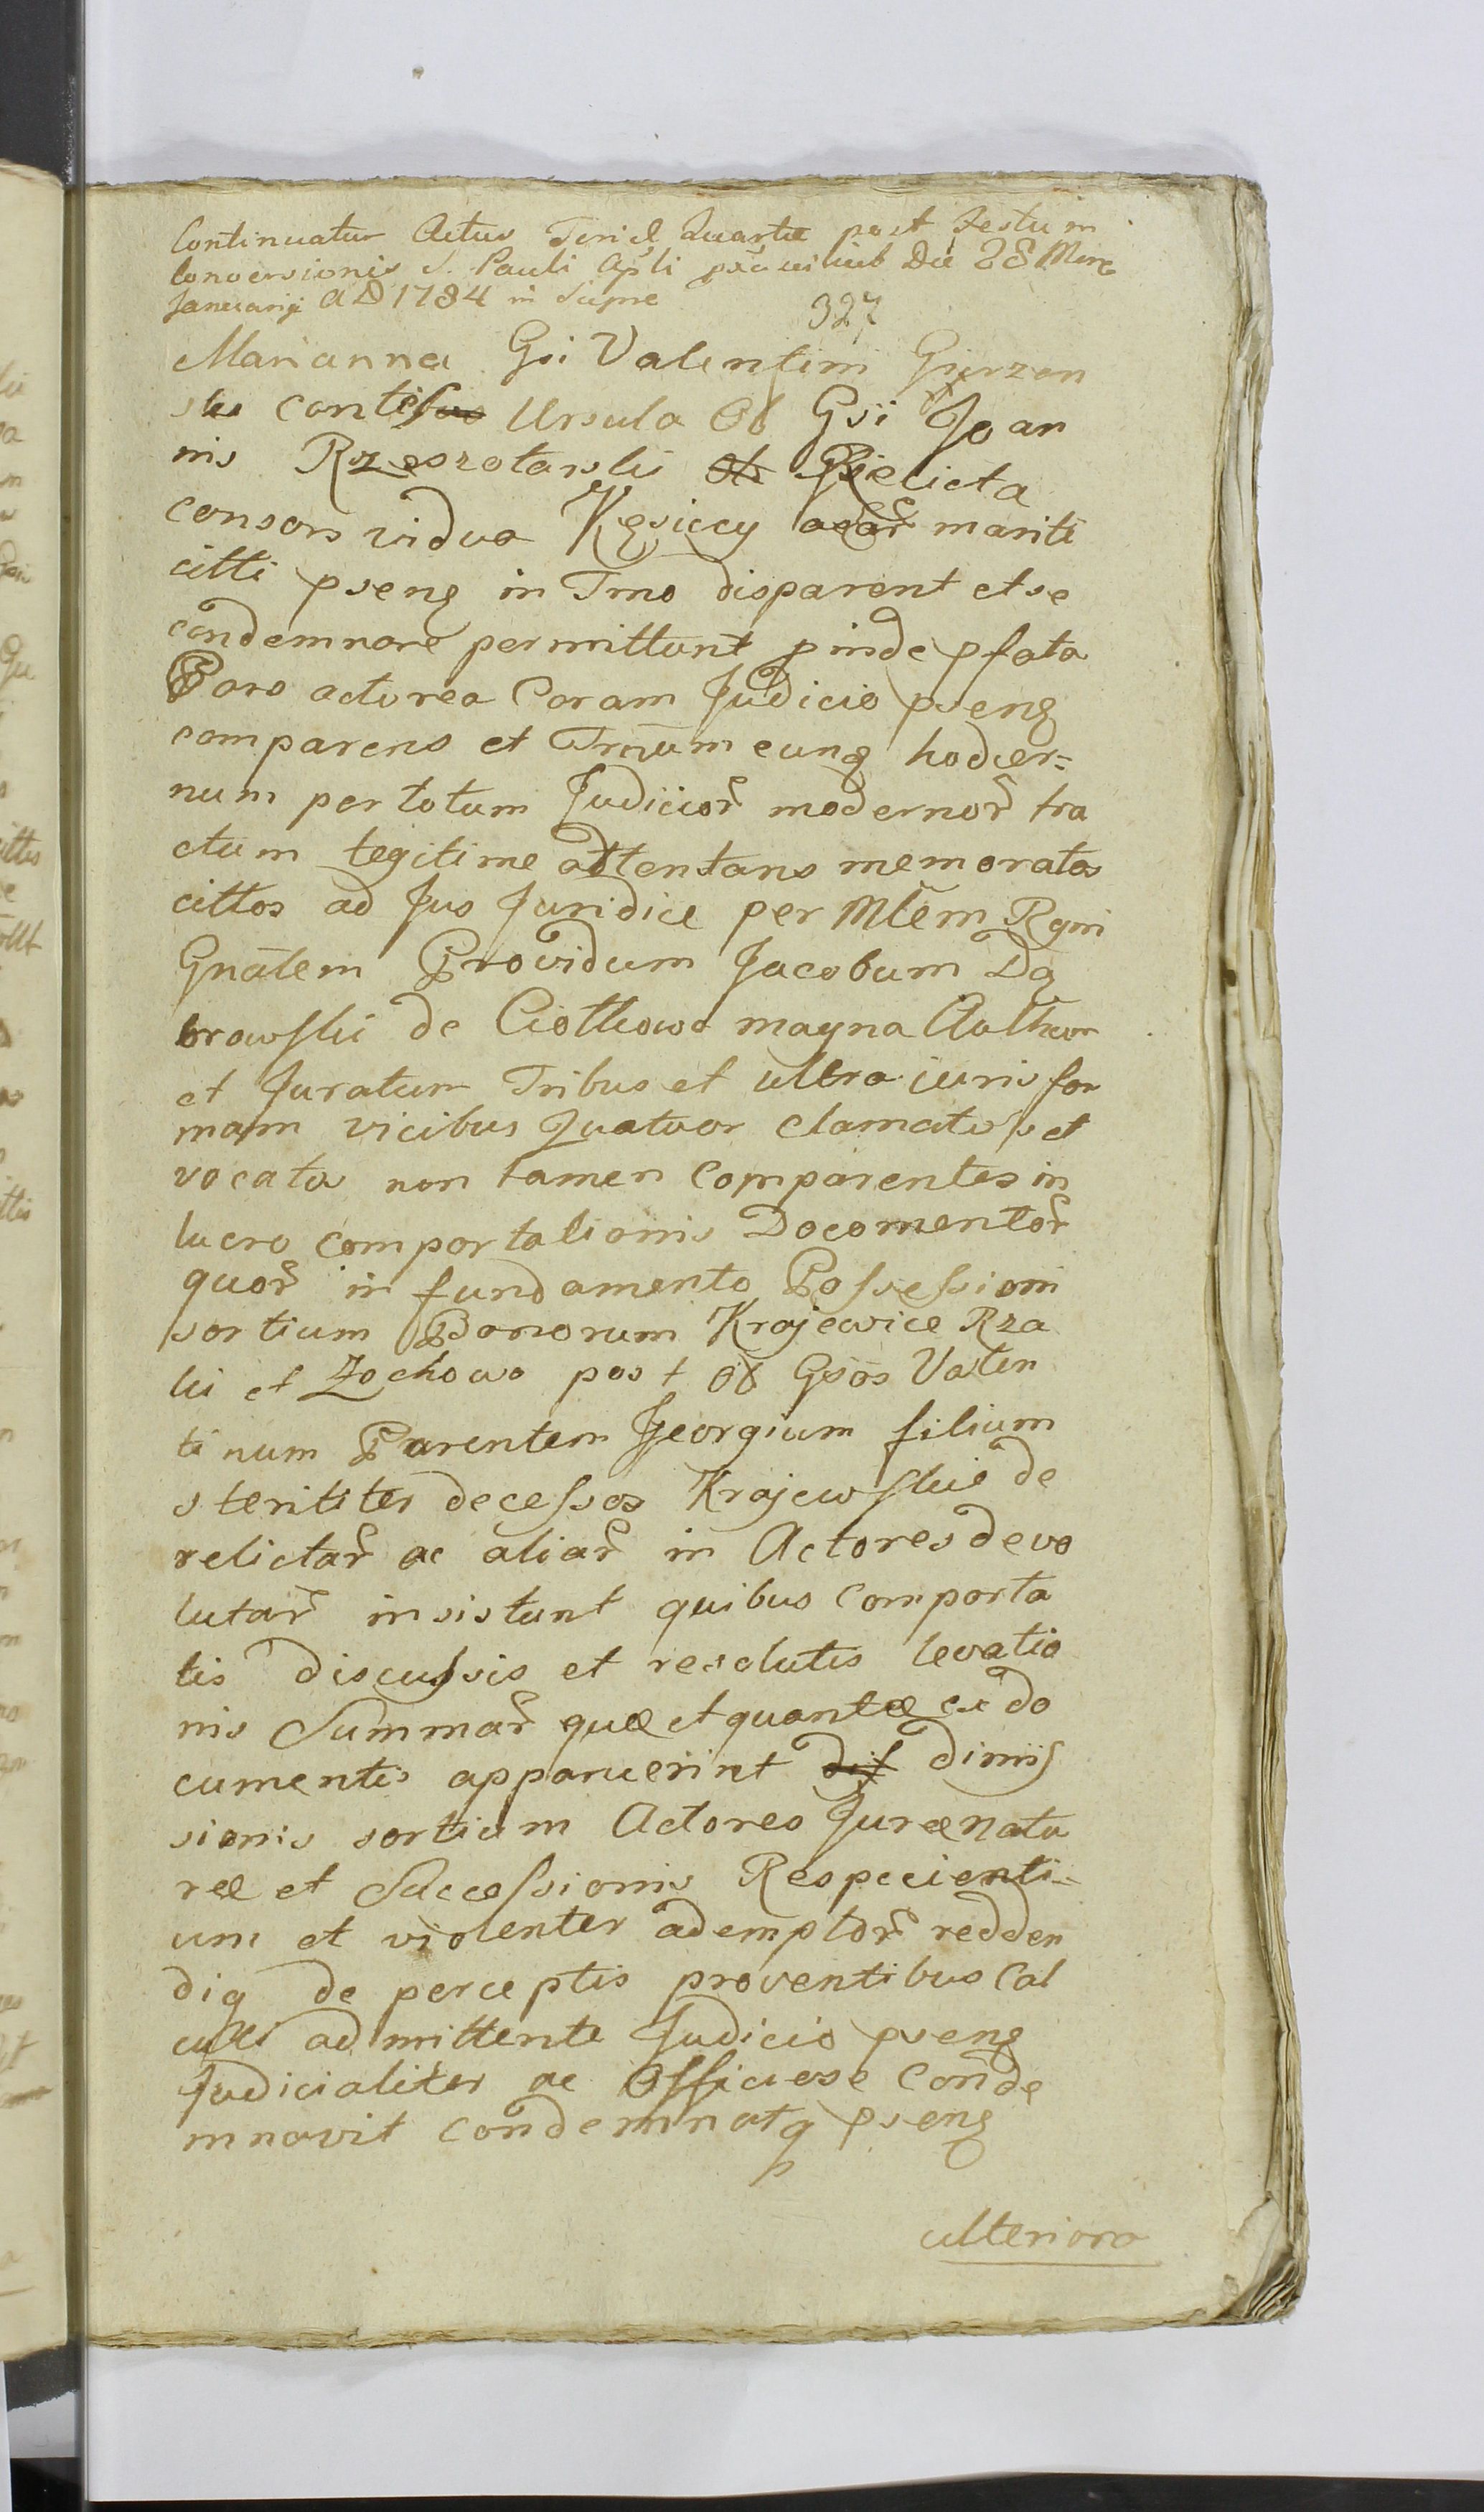 Continuatur Actus Feriæ Quartæ post Festum
Conversionis S. Pauli Apli Die 28 Mens
Januarij AD 1784 in Sierpc
327
Marianna Gsi Valentini Gierzon
ski Ursula Ol Gsi Joan
nis Rzeszotarski Relicta
consors vidua Kęsiccy mariti
citti pseng in Tmo disparent et se
condemnare permittunt pinde pfata
Pars actorea Coram Judicio pseng
comparens et Trnum eunq hodier=
num per totum Judicior modernor tra
ctum legitime attentans memoratos
cittos ad Jus Juridice per Mlem Rgni
Gnalem Providum Jacobum Dą
browski de Ciołkowo magna Author
et Juratum Tribus et ultra iuris for
mam vicibus Quatuor clamatos et
vocatos non tamen comparentes in
lucro comportationis Documentor
quor in fundamento Possessioni
sortium Bonorum Krajewice Rza
ki et Żochowo post Ol Gsos Valen
tinum Parentem Georgium filium
steriliter decessos Krajewskie de
relictar ac aliar in Actores devo
lutar insistunt quibus comporta
tis discussis et resolutis levatio
nis Summar quæ et quantæ ex do
cumentis apparuerint dimis
sionis sortium Actores Jure Natu
ræ et Successionis Respicienti=
um et violenter ademptor redden
diq de perceptis proventibus Cal
culi admittente Judicio pseng
Judicialiter ac Officiose Conde
mnavit condemnatq pseng
ulteriora